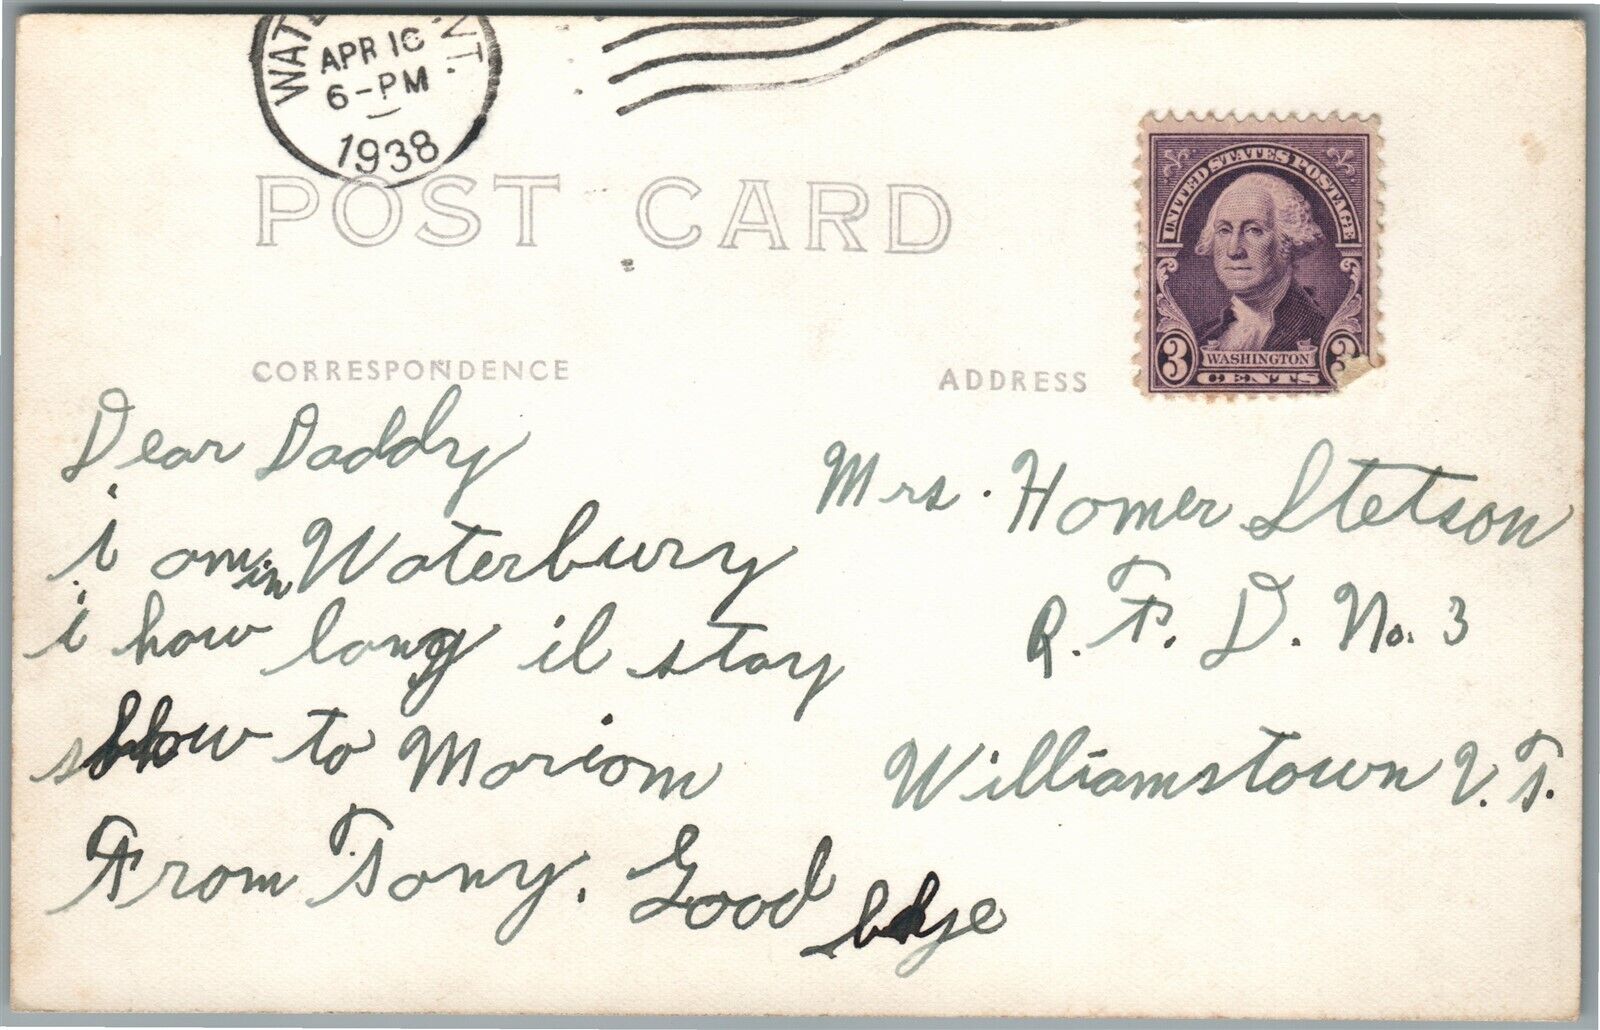 APR 16
6-PM
1938
VT.
POST CARD
UNITED STATES POSTAGE
WASHINGTON
3
CENTS
CORRESPONDENCE
ADDRESS
Dear Daddy
i am in Waterbury
i how long il stay
show to Moriom
From Tony. Good bye
Mrs. Homer Stetson
R. F. D. No. 3
Williamstown V.T.